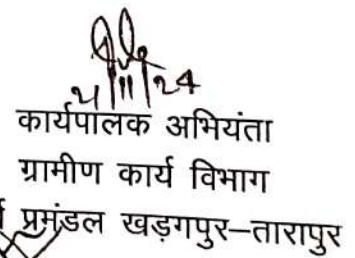 4/11/24
कार्यपालक अभियंता
ग्रामीण कार्य विभाग
प्रमंडल खड़गपुर–तारापुर